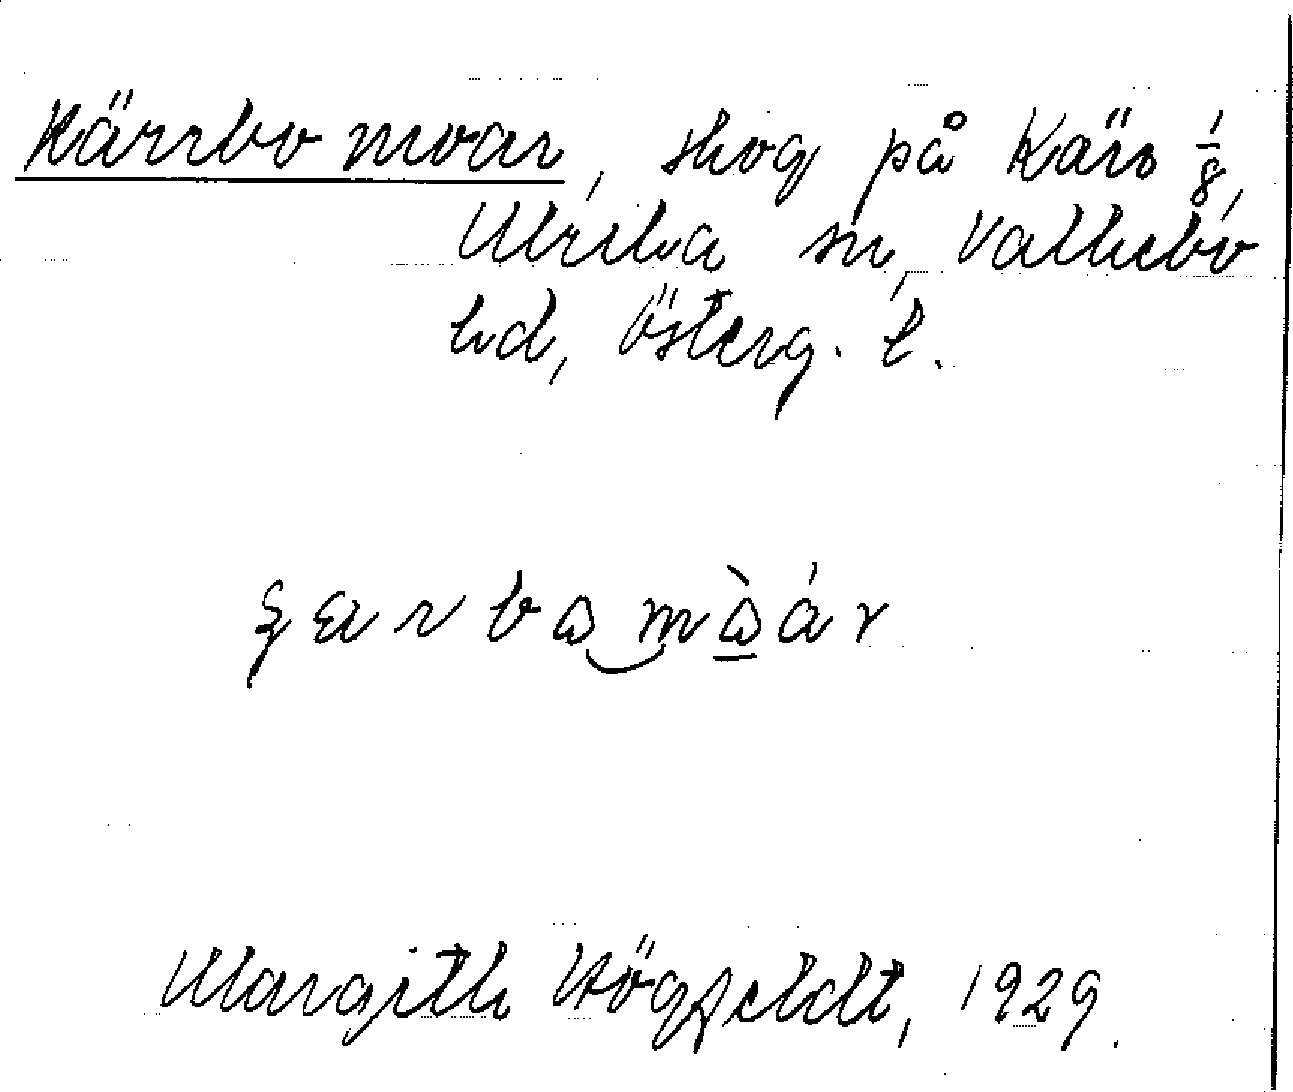 Kärrbo moar, skog på Kärs 1/8,
Ulrika sn, Valkebo
hd, Österg. l.
Margith Högfeldt, 1929.